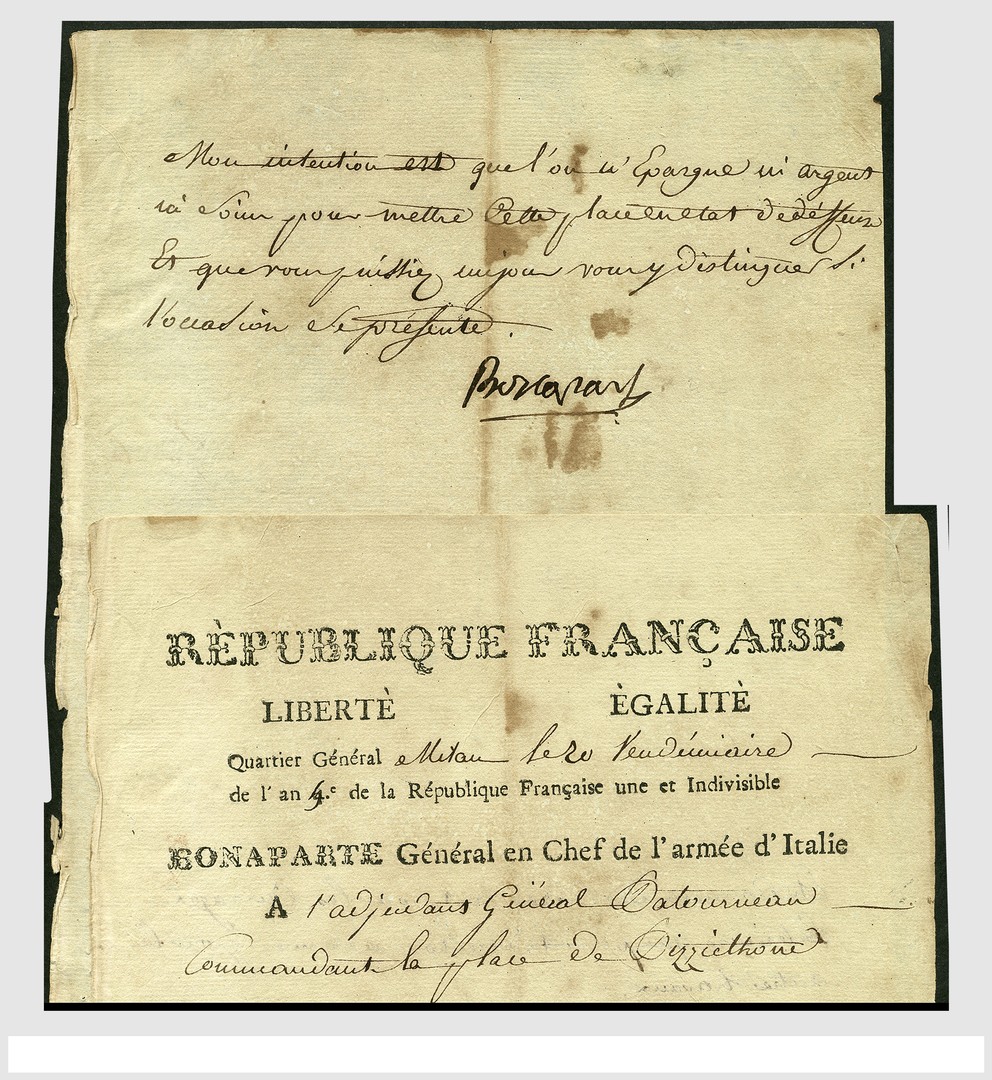 Mon intention est que l'on n'Epargne ni argent
ni soins pour mettre Cette place en etat de déffense
Et que vous puissiez un jour vous y distinguer Si
l'occasion Se présente.
Bonaparte
RÈPUBLIQUE FRANÇAISE
LIBERTÈ ÈGALITÈ
Quartier Général Milan le 20 Vendémiaire
de l'an 5.e de la République Française une et Indivisible
BONAPARTE Général en Chef de l'armée d'Italie
A l'adjudant Général Latourneau
Commandant la place de Pizzicthone